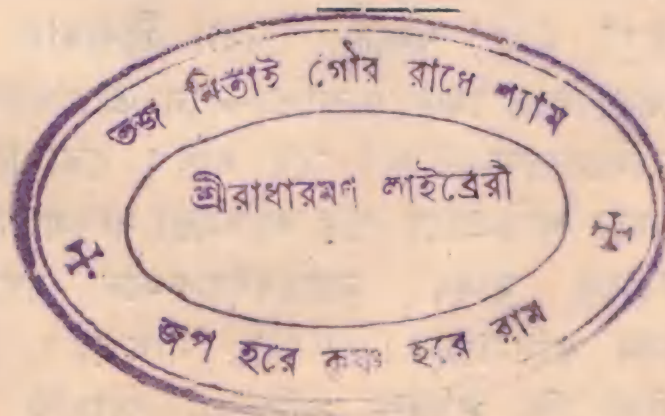 ভজ নিতাই গৌর রাধে শ্যাম
শ্রীরাধারমণ লাইব্রেরী
জপ হরে কৃষ্ণ হরে রাম